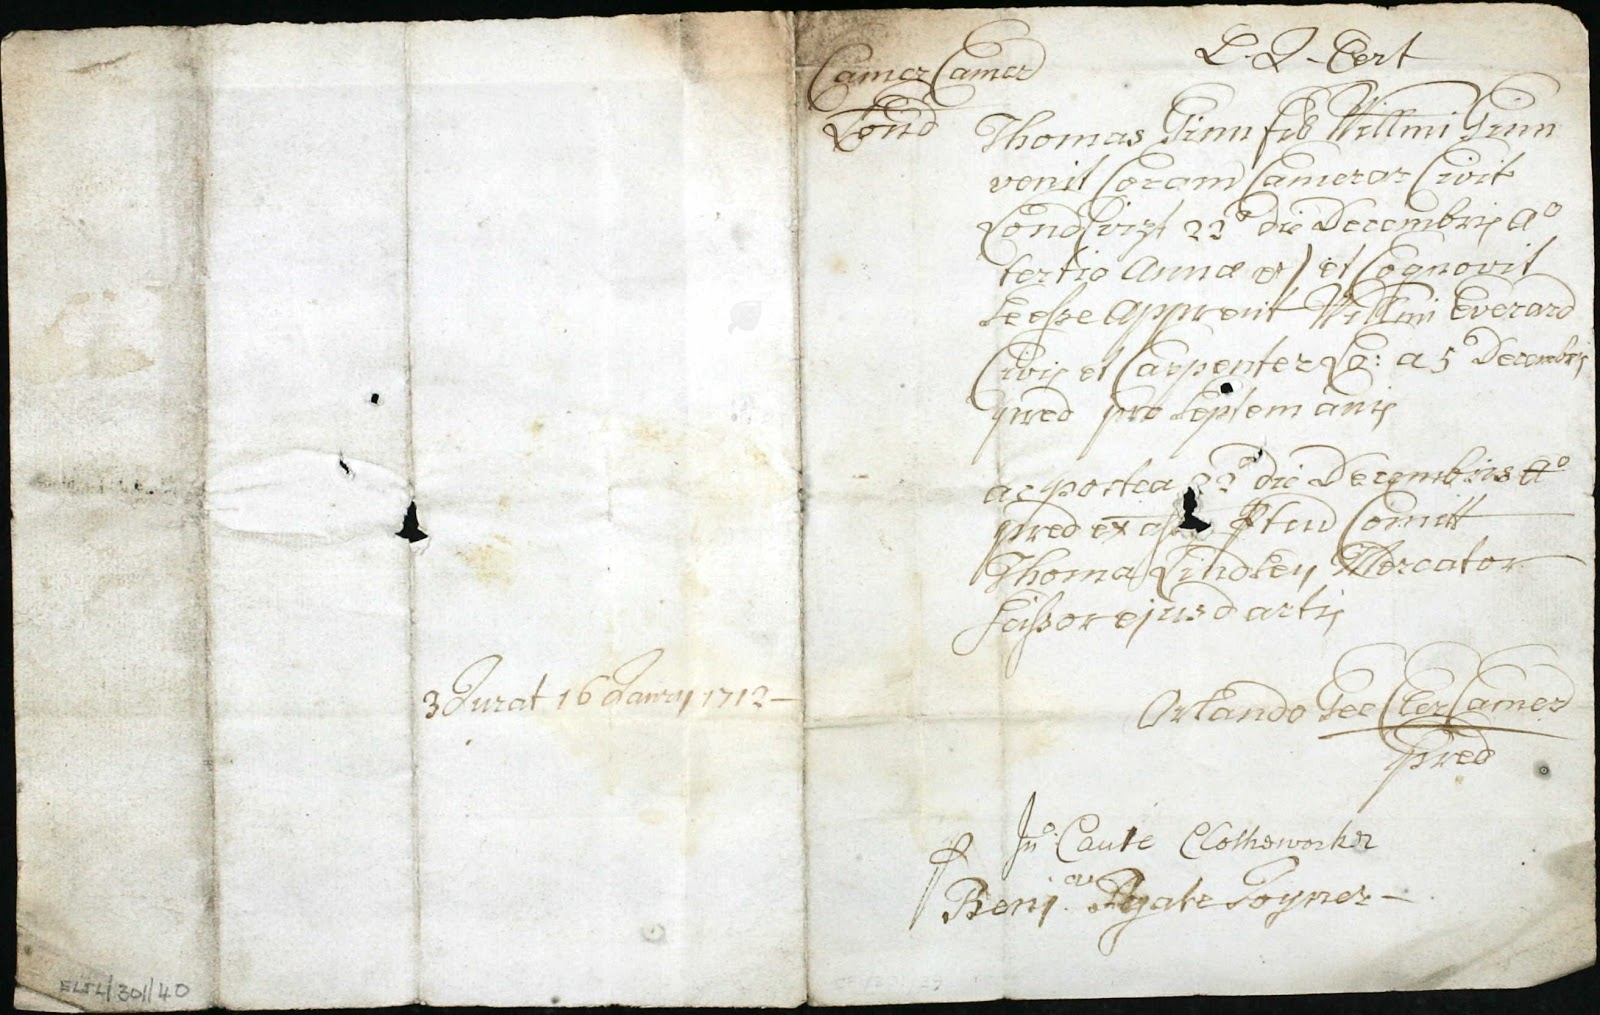 Camer Camer
Lond
L. Q. Cert
Thomas Ginn fil Willmi Ginn
venit Coram Camerar Civit
Lond vizt 22o die Decembris Ao
tertio Annæ et) et Cognovit
se esse Apprent Willmi Everard
Civis et Carpenter Lo: a 5 Decembris
pred pro septem anis
ac postea 22o die Decembris Ao
pred ex Comitt
Thoma Lindsey Mercator
scissor ejusd artis
3 Jurat 16 Janry 1712 —
Orlando Gee Cler Camer
pred
Jno Caute Clotheworker
Benj. Agate Joyner —
ELJL/301/40